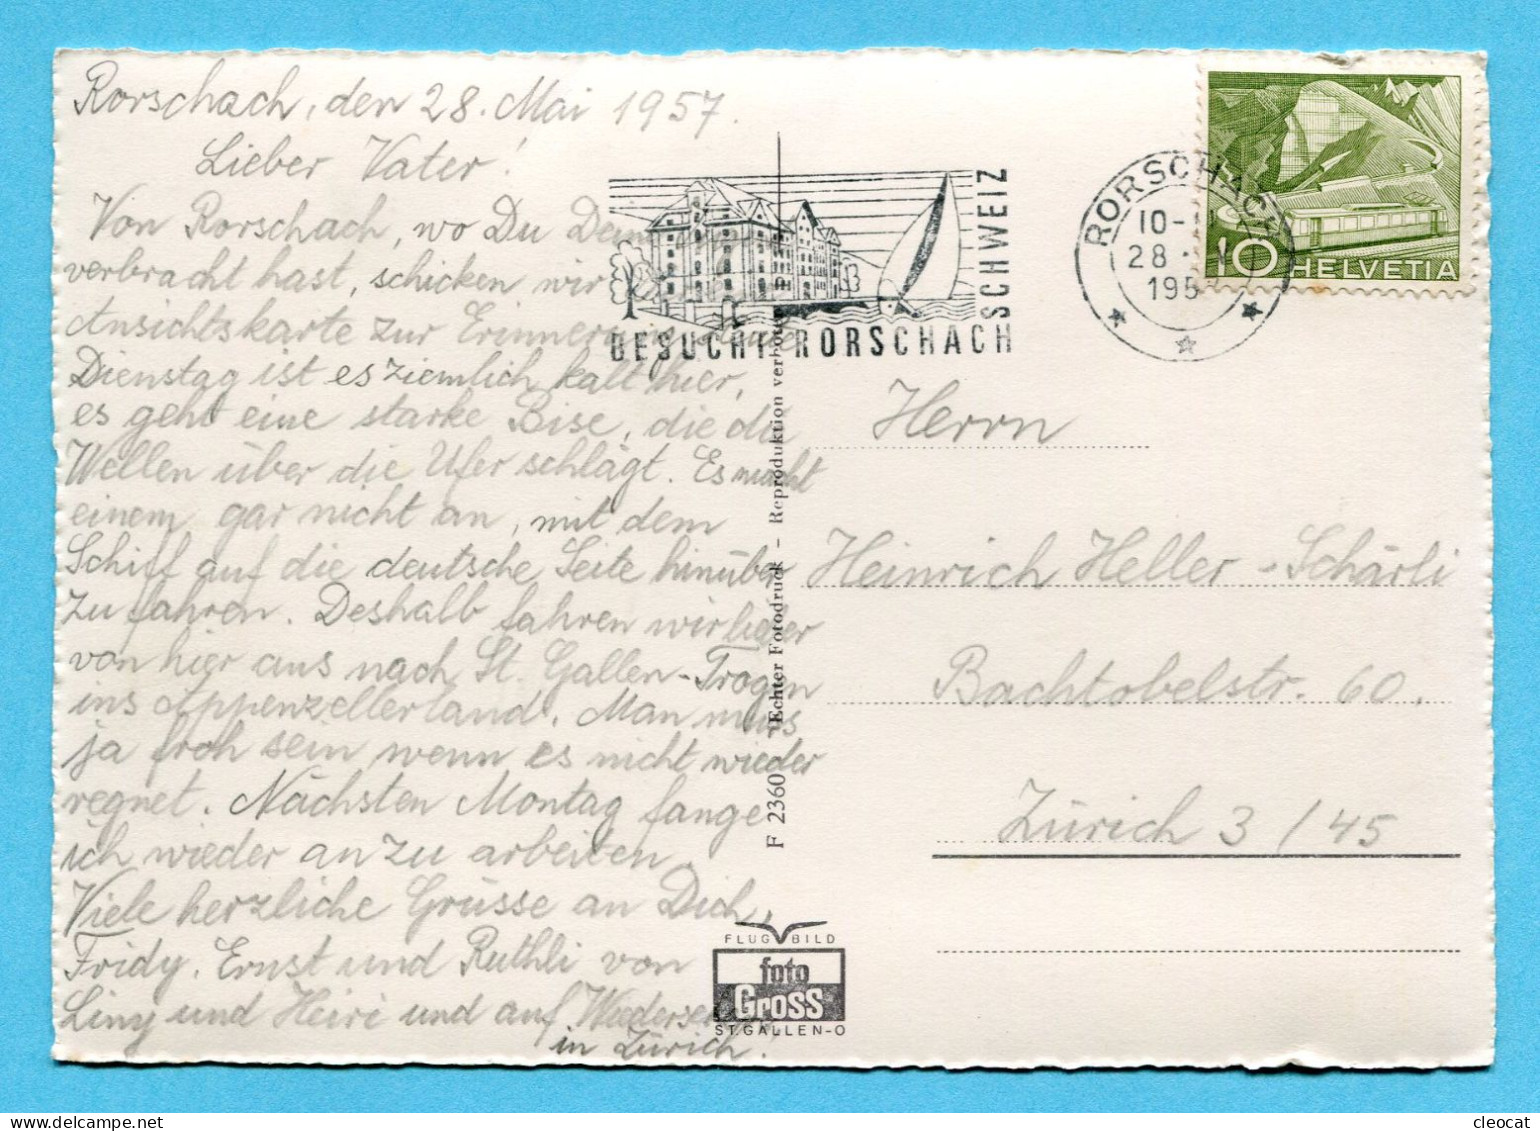 Rorschach, den 28. Mai 1957.
Lieber Vater!
Von Rorschach, wo Du
verbracht hast, schicken wir
Ansichtskarte zur
Dienstag ist es ziemlich kalt hier,
es geht eine starke Bise, die die
Wellen über die Ufer schlägt. Es macht
einem gar nicht an, mit dem
Schiff auf die deutsche Seite hinüber
zu fahren. Deshalb fahren wir lieber
von hier aus nach St. Gallen-Trogen
ins Appenzellerland. Man muss
ja froh sein wenn es nicht wieder
regnet. Nächsten Montag fange
ich wieder an zu arbeiten.
Viele herzliche Grüsse an Dich,
Fridy, Ernst und Ruthli von
Liny und Heiri und auf
in Zürich!
BESUCHT RORSCHACH
SCHWEIZ
RORSCHACH
10-
28. V
195
10 HELVETIA
F 2360 Echter Fotodruck – Reproduktion verboten
FLUG BILD
foto
Gross
ST. GALLEN-O
Herrn
Heinrich Heller-Schärli
Bachtobelstr. 60.
Zürich 3/45
cleocat